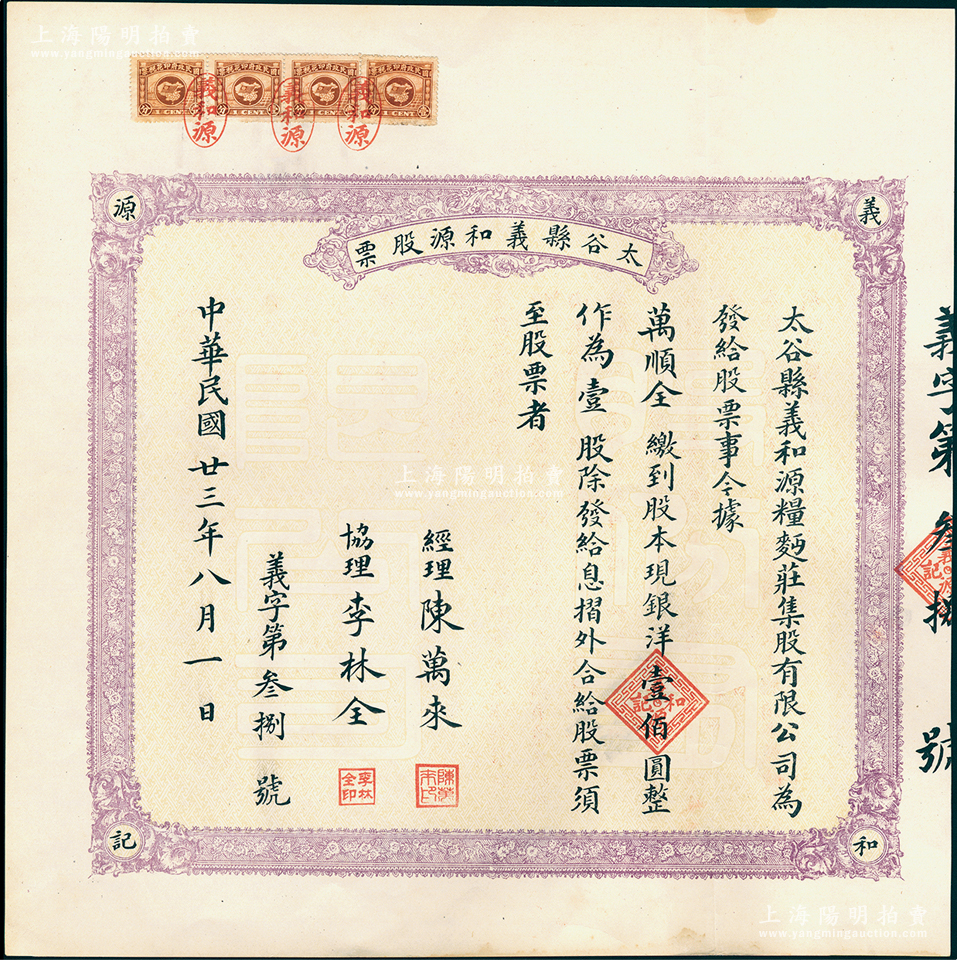 上海陽明拍賣
www.yangmingauction.com
1 CENT
1 CENT
1 CENT
1 CENT
義和源
義和源
義和源
義
和
源
記
太谷縣義和源股票
義字第叁捌號
太谷縣義和源糧麪莊集股有限公司為
發給股票事今據
萬順全 繳到股本現銀洋壹佰圓整
作為壹 股除發給息摺外合給股票須
至股票者
經理陳萬來
協理李林全
李林全印
義字第叁捌 號
中華民國廿三年八月一日
上海陽明拍賣
www.yangmingauction.com
上海陽明拍賣
www.yangmingauction.com